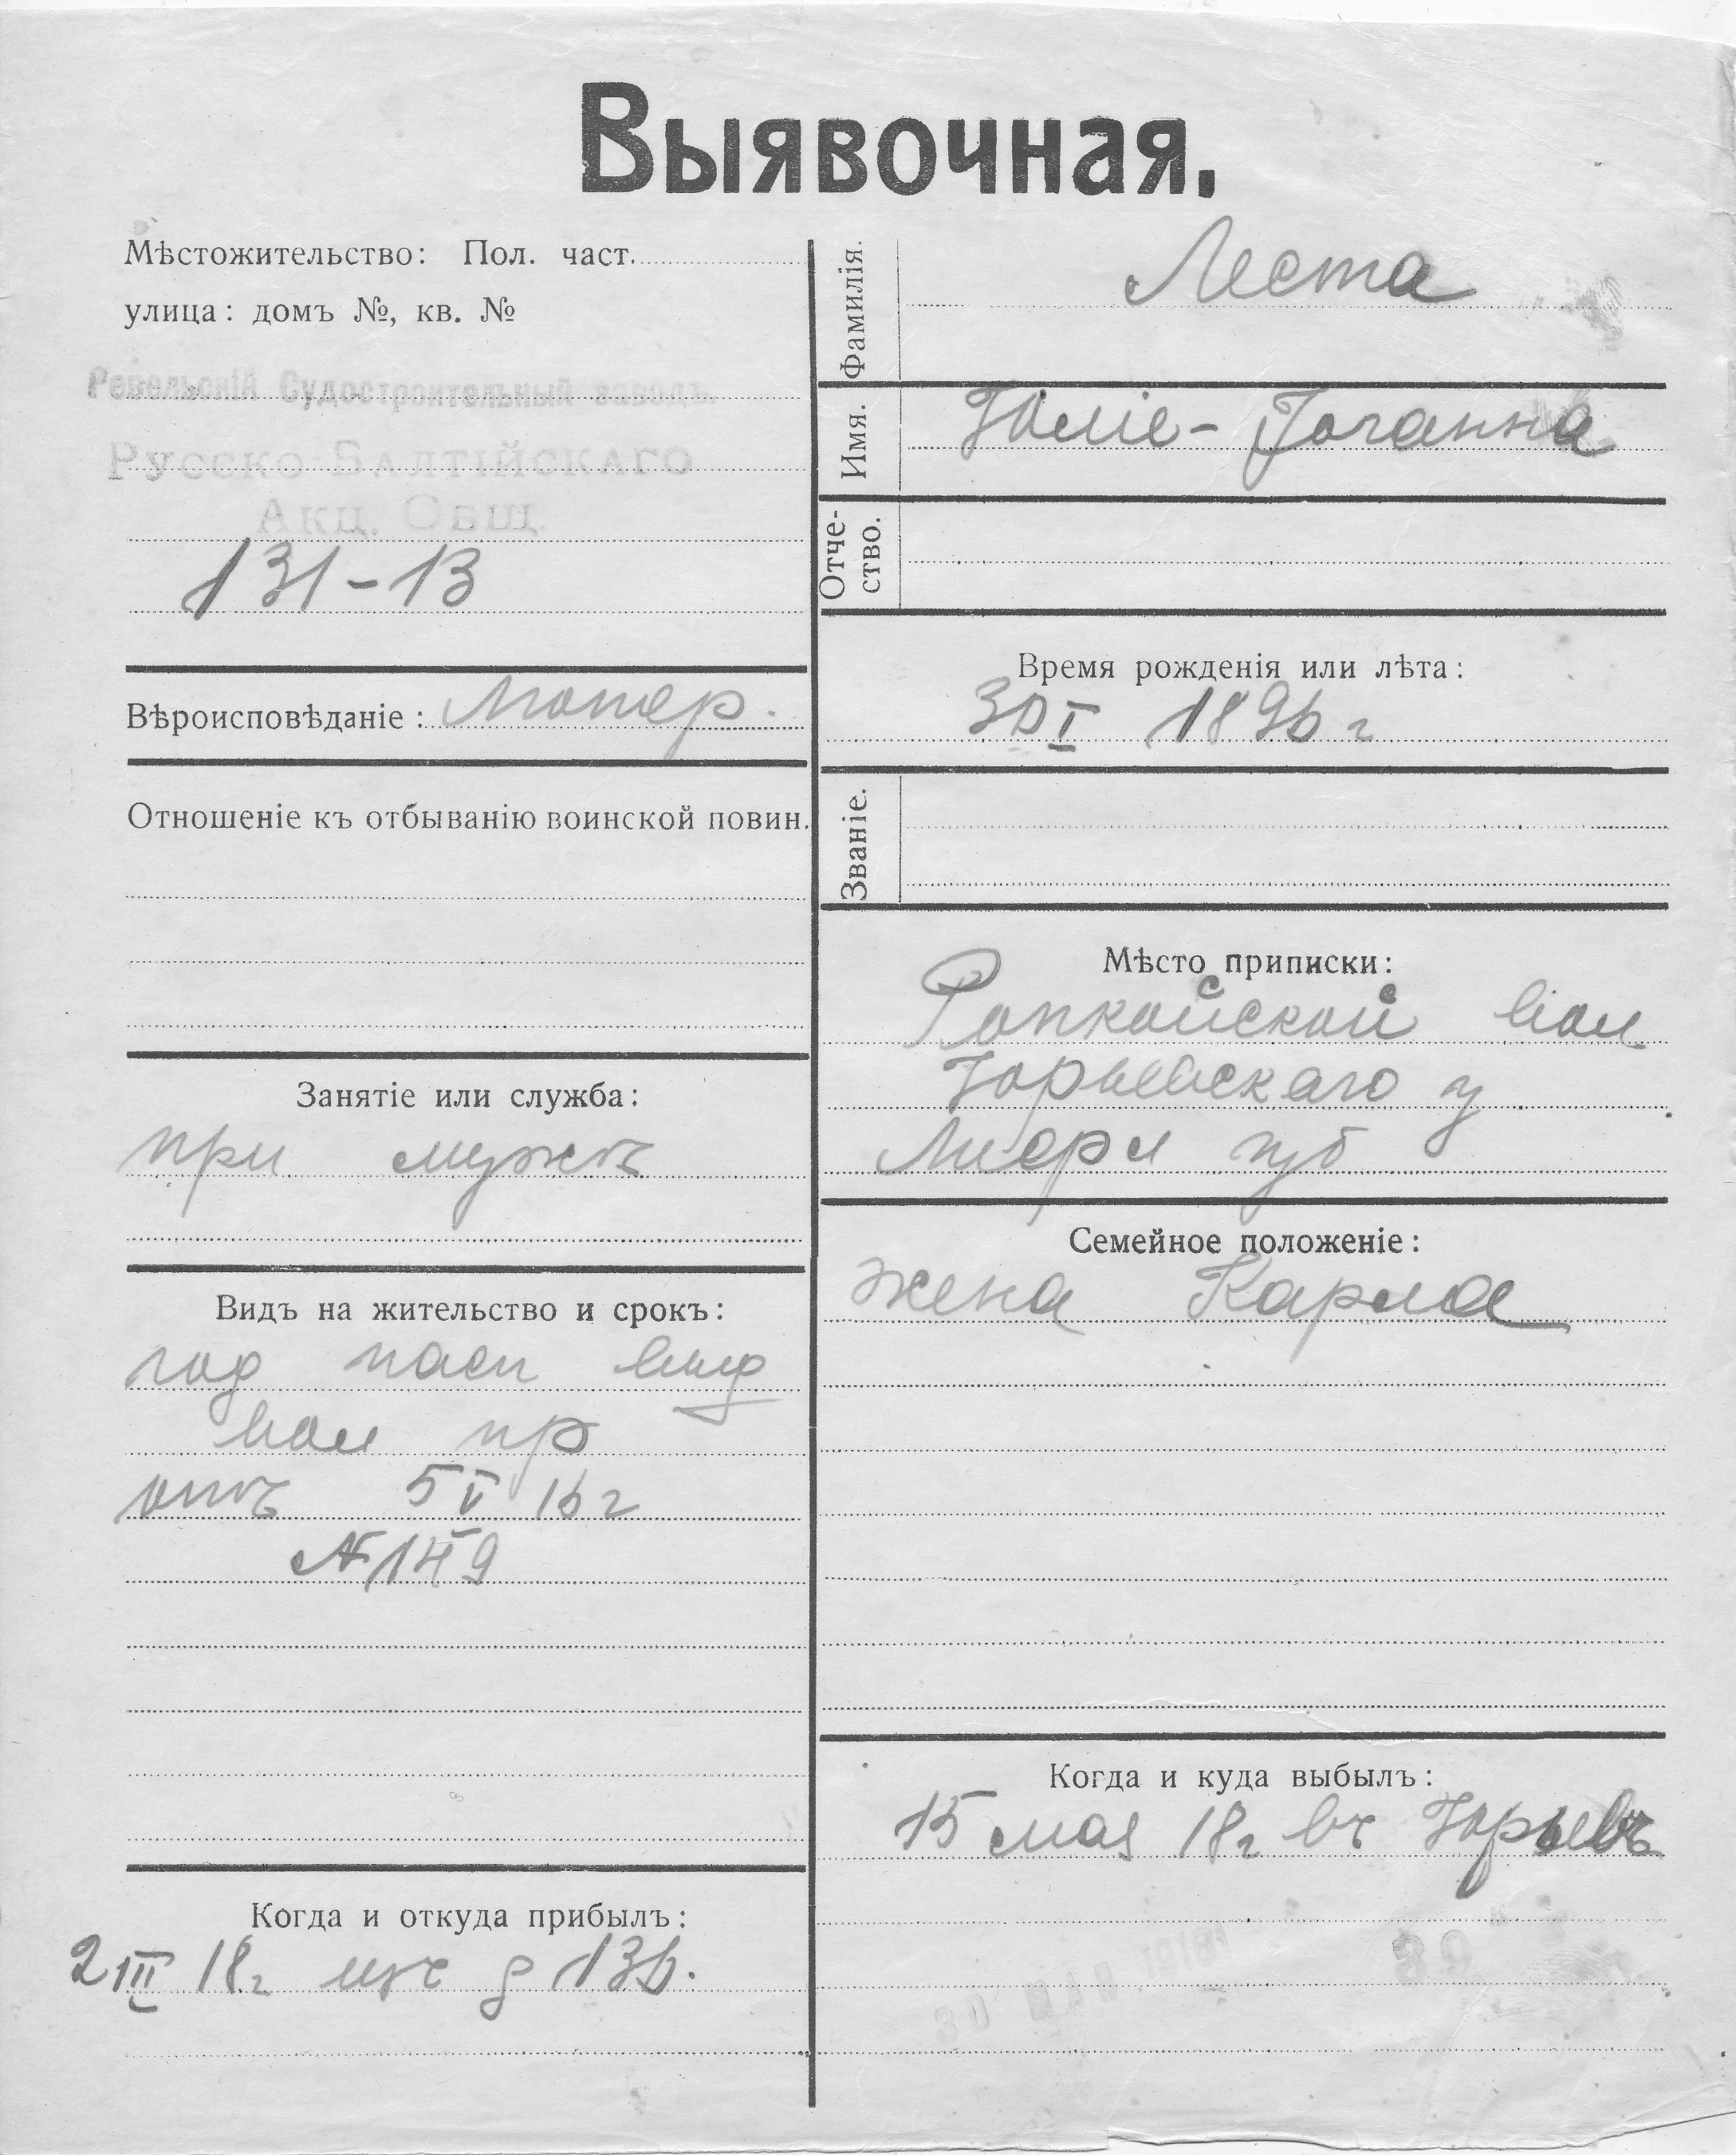 Выявочная.
Мѣстожительство: Пол. част.
улица: домъ №, кв. №
Ревельскій Судостроительный заводъ.
Русско-Балтійскаго
Акц. Общ.
131-13
Вѣроисповѣданіе: Лютер.
Отношеніе къ отбыванію воинской повин.
Занятіе или служба:
при мужѣ
Видъ на жительство и срокъ:
год пасп выд
вол пр
отъ 5 V 16 г
№ 149
Когда и откуда прибылъ:
2 III 18 г изъ д 136.
Фамилія. Леста
Имя. Юліе-Іоганна
Отче-
ство.
Время рожденія или лѣта:
30 I 1896 г
Званіе.
Мѣсто приписки:
Ропкойской вол
Юрьевскаго у
Лифл губ
Семейное положеніе:
жена Карла
Когда и куда выбылъ:
15 мая 18 г въ Юрьевъ
30 МАЯ 1918